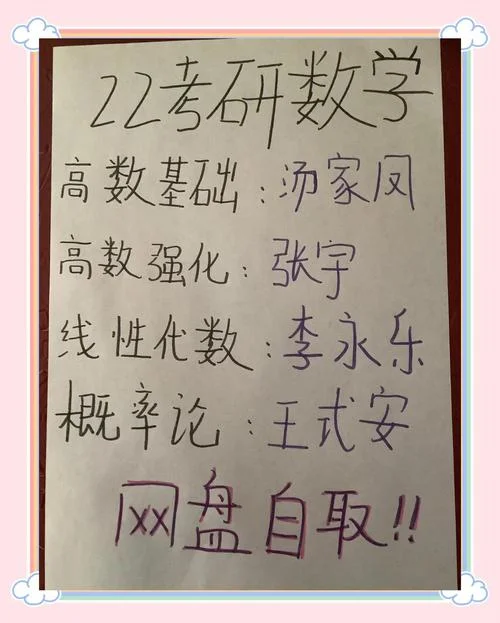 22考研数学
高数基础：汤家凤
高数强化：张宇
线性代数：李永乐
概率论：王式安
网盘自取!!